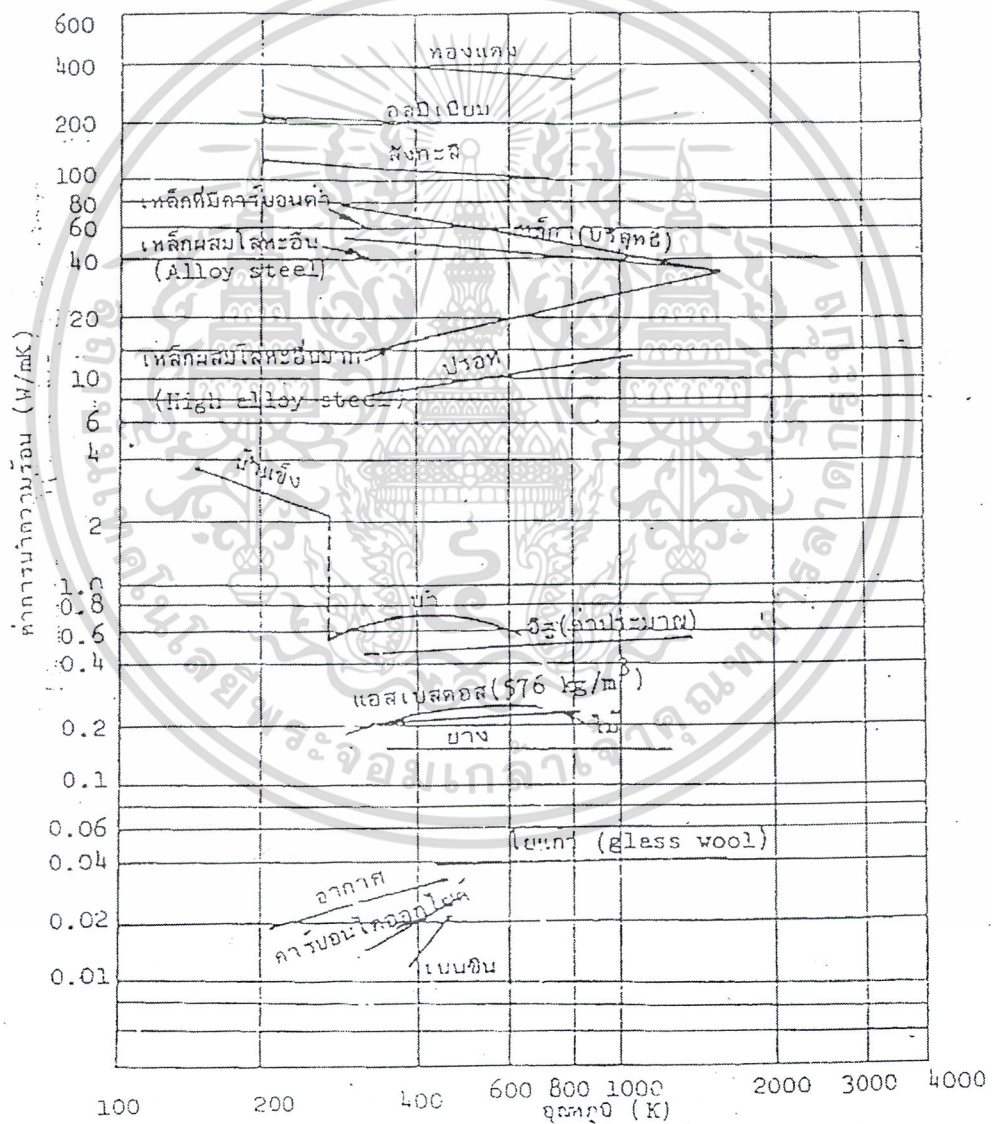 600
400
200
100
80
60
40
20
10
6
4
2
1.0
0.8
0.6
0.4
0.2
0.1
0.06
0.04
0.02
0.01
ค่าการนำความร้อน (W/mK)
ทองแดง
อลูมิเนียม
สังกะสี
เหล็กที่มีคาร์บอนต่ำ
เหล็ก (บริสุทธิ์)
เหล็กผสมโลหะอื่น
(Alloy steel)
เหล็กผสมโลหะอื่นมาก
(High alloy steel)
ปรอท
น้ำแข็ง
น้ำ
อิฐ(ค่าประมาณ)
แอสเบสตอส(576 kg/m3)
ไม้
ยาง
ใยแก้ว (glass wool)
อากาศ
คาร์บอนไดออกไซด์
เบนซิน
100 200 400 600 800 1000 2000 3000 4000
อุณหภูมิ (K)